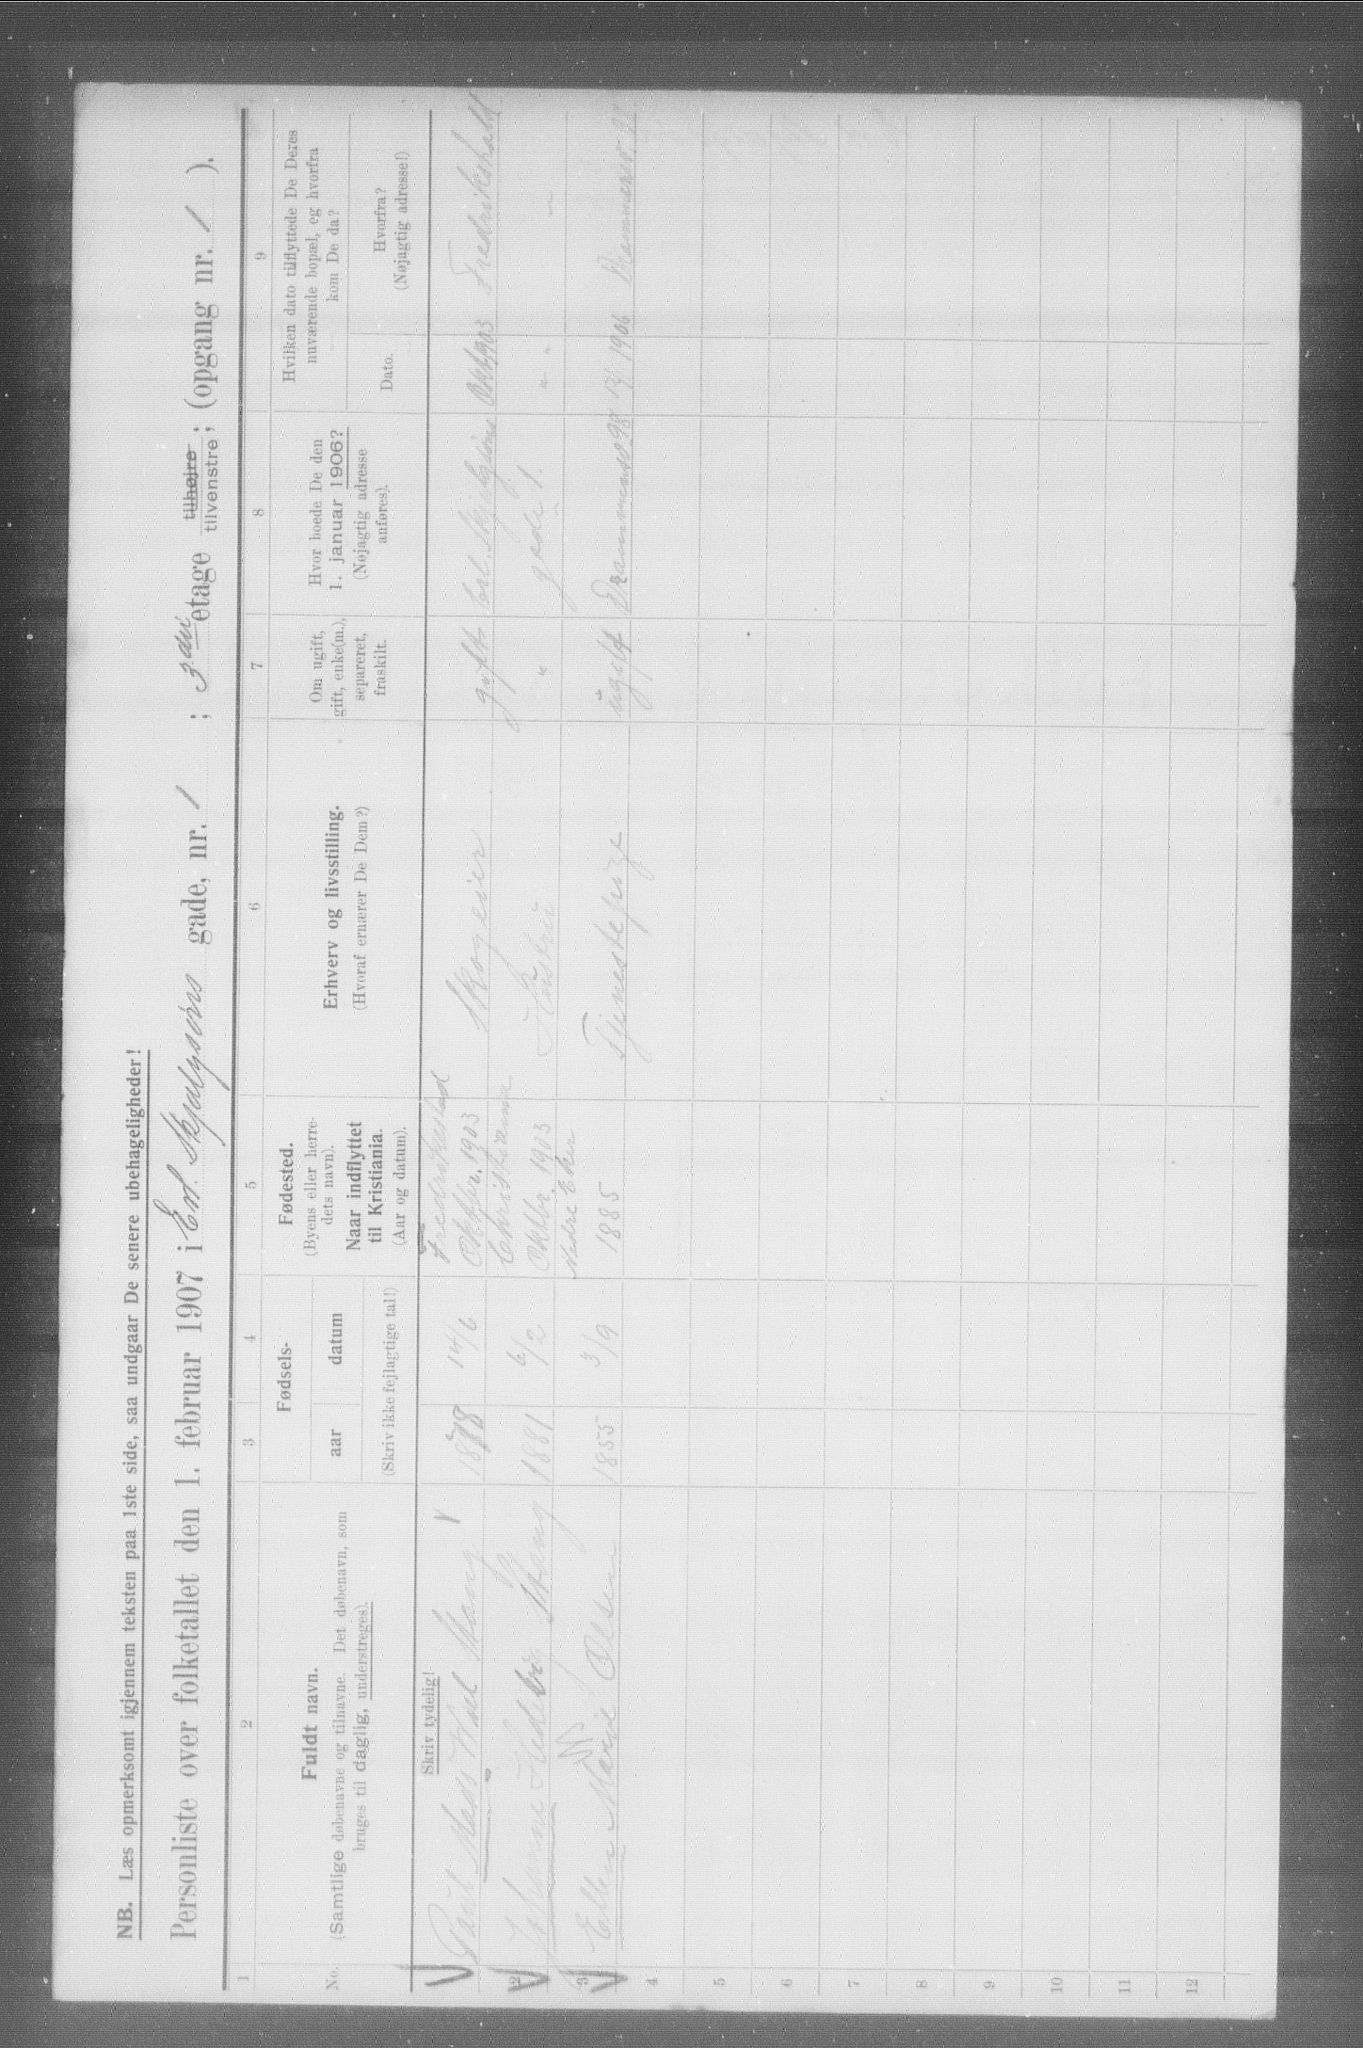 NB. Læs opmerksomt igjennem teksten paa 1ste side, saa undgaar De senere ubehageligheder!
Personliste over folketallet den 1. februar 1907 i Erl. Skjalgsøns gade, nr. 1 ; 3die etage tilhøjre tilvenstre; (opgang nr. 1 ).
1 2 3 4 5 6 7 8 9
No.
Fuldt navn.
(Samtlige døbenavne og tilnavne. Det døbenavn, som
bruges til daglig, understreges).
Fødsels-
aar datum
(Skriv ikke fejlagtige tal!)
Fødested.
(Byens eller herre-
dets navn).
Naar indflyttet
til Kristiania.
(Aar og datum).
Erhverv og livsstilling.
(Hvoraf ernærer De Dem?)
Om ugift,
gift, enke(m.),
separeret,
fraskilt.
Hvor boede De den
1. januar 1906?
(Nøjagtig adresse
anføres).
Hvilken dato tilflyttede De Deres
nuværende bopæl, og hvorfra
kom De da?
Dato.
Hvorfra?
(Nøjagtig adresse!)
Skriv tydelig!
Paul Mads Wiel Stang 1878 14/6 Fredrikstad Oktbr. 1903 Skogeier gift Erl. Skjalgsøns Okt 1903 Fredrikshald
2 Johanne Stang 1881 6/2 Christiania Oktbr. 1903 Hustru " gade 1. " " "
3 Ellen Marie Olsen 1855 3/9 Nedre Eker 1885 Tjenestepige ugift Drammensv 98 1906 Drammensv. 98
4
5
6
7
8
9
10
11
12